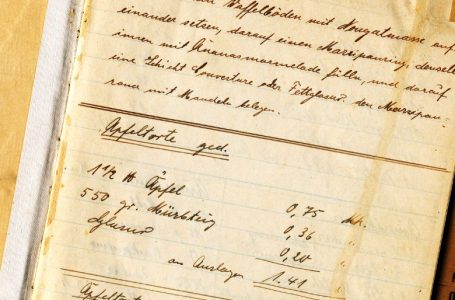 Waffelböden mit Nougatmasse auf
einander setzen, darauf einen Marzipanring, denselben
innen mit Ananasmarmelade füllen, und darauf
eine Schicht Couverture oder Fettglasur. den Marzipan-
rand mit Mandeln belegen.
Apfeltorte ged.
1 1/2 ℔ Äpfel 0,75 Mk.
550 gr. Mürbteig 0,36 "
Glasur 0,20 "
an Auslagen 1.41 "
Apfeltorte